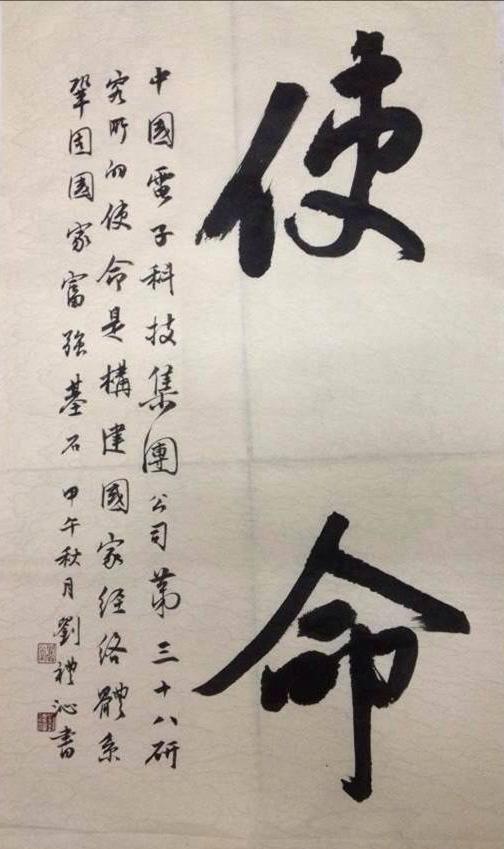 使命
中國電子科技集團公司第三十八研
究所的使命是構建國家经络體系
鞏固國家富強基石 甲午秋月 劉禮沁書